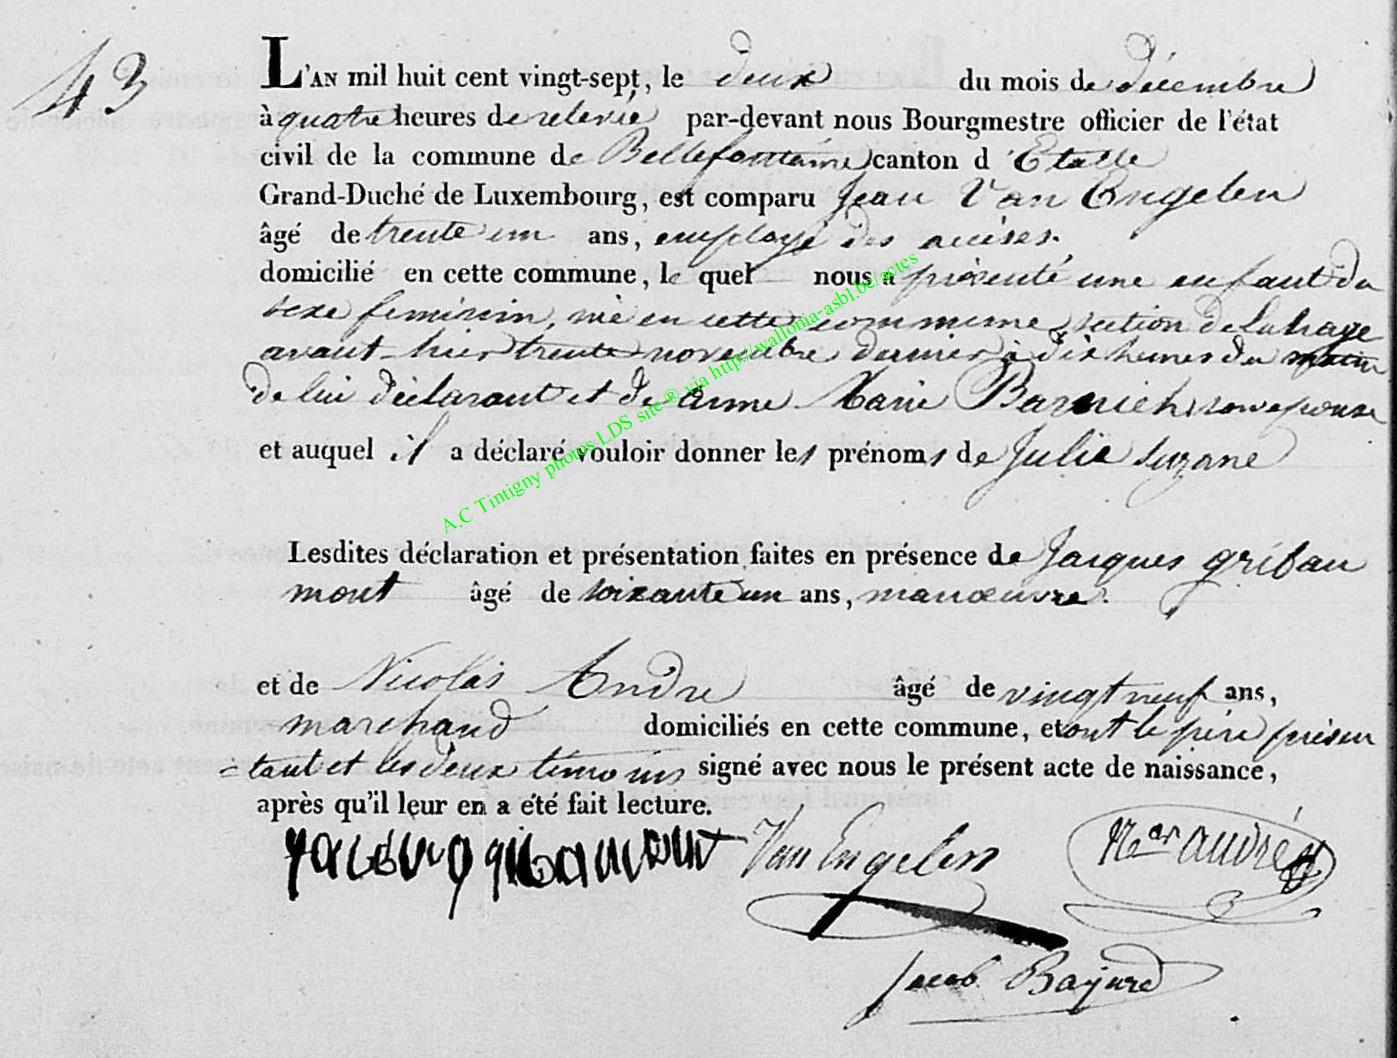 43
L'AN mil huit cent vingt-sept, le deux du mois de décembre
à quatre heures de relevée par-devant nous Bourgmestre officier de l'état
civil de la commune de Bellefontaine canton d'Etalle
Grand-Duché de Luxembourg, est comparu Jean Van Engelen
âgé de trente un ans, employé des accises.
domicilié en cette commune, le quel nous a présenté une enfant du
sexe feminin, née en cette commune, section de Lahage
avant-hier trente novembre dernier à dix heures du matin
de lui déclarant et de anne Marie Barnich, son epouse
et auquel il a déclaré vouloir donner les prénoms de Julie Suzane
Lesdites déclaration et présentation faites en présence de Jacques gribau
mont âgé de soixante un ans, manœuvre.
et de Nicolas André âgé de vingt neuf ans,
marchand domiciliés en cette commune, et ont le père présen
tant et les deux témoins signé avec nous le présent acte de naissance,
après qu'il leur en a été fait lecture.
Van Engelen
Nas andré
Jacob Bajard
A.C Tintigny photos LDS site® via http://wallonia-asbl.be/actes